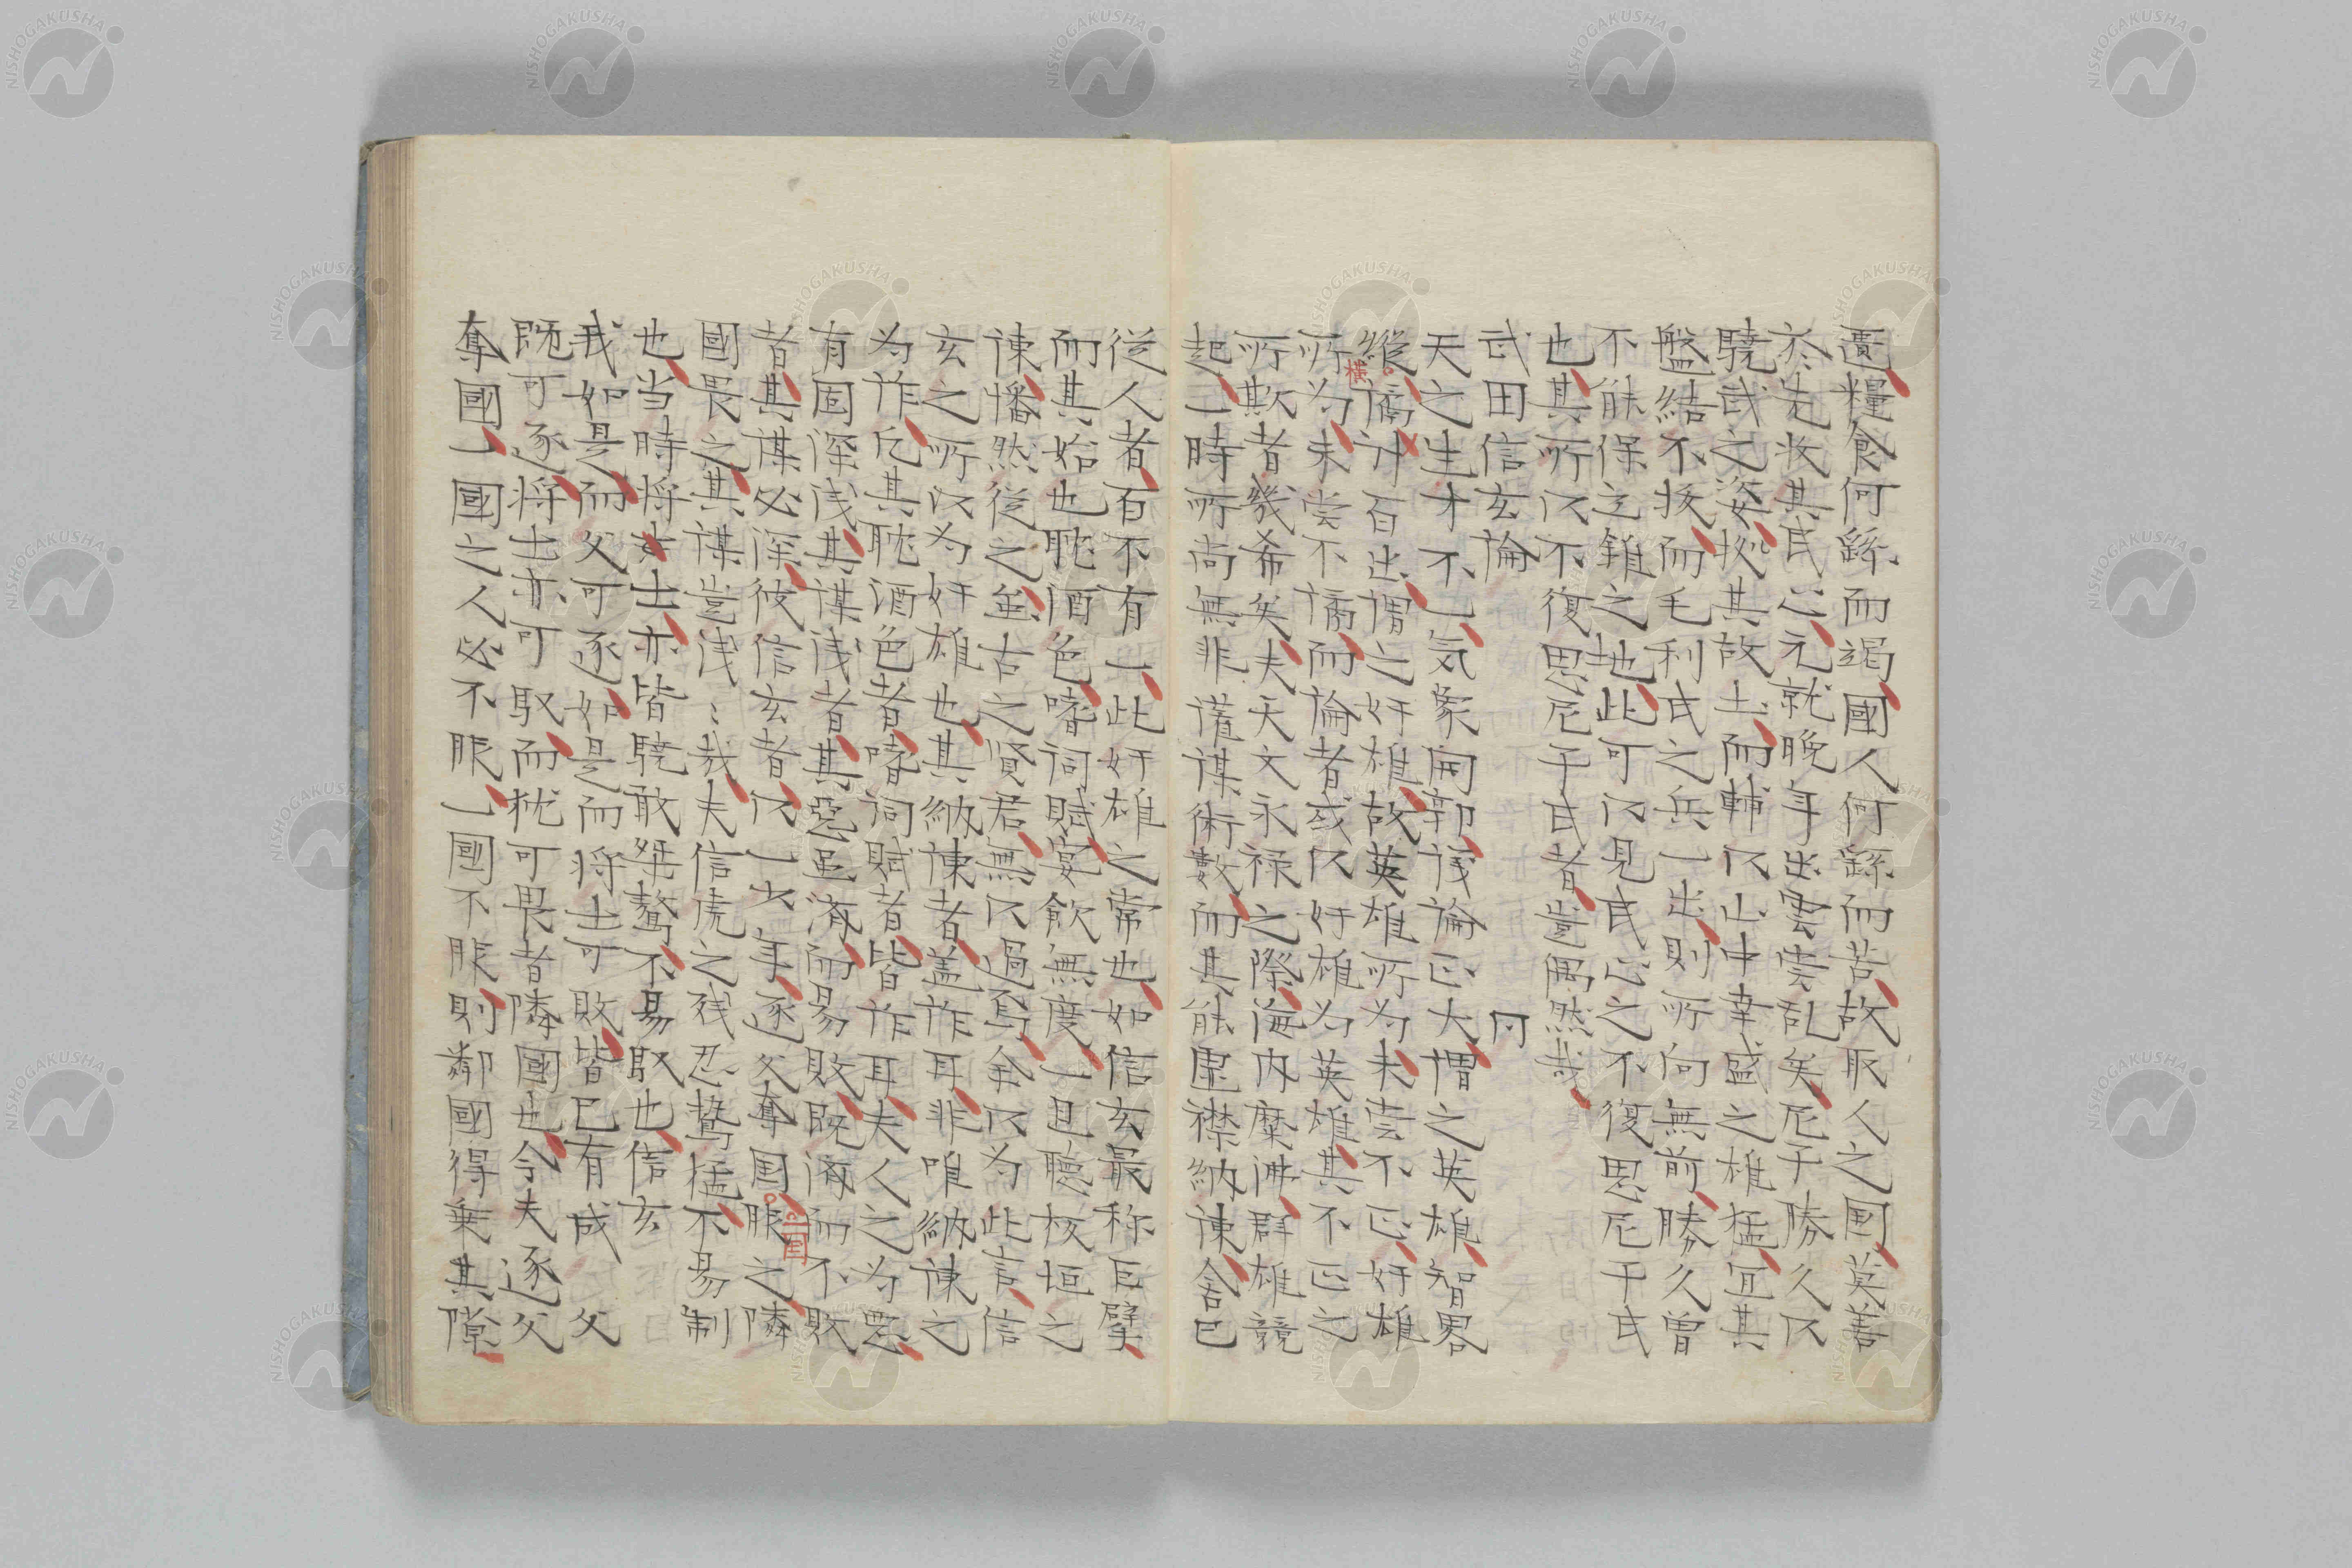 遺糧食何繇而竭國人何繇而苦故取人之国莫善
於先收其民心元就晩年出雲尝乱矣尼子勝久以
驍武之姿拠其故土而輔以山中幸盛之雄猛宜其
盤結不抜而毛利氏之兵一出則所向無前勝久曽
不能保立錐之地此可以見民心之不復思尼子氏
也其所以不復思尼子氏者豈偶然哉
武田信玄論 同
天之生才不一気象開郭議論正大謂之英雄智畧
縦横譎计百出謂之奸雄故英雄所为未尝不正奸雄
所为未尝不譎而論者或以奸雄为英雄其不正之
所欺者幾希矣夫天文永禄之際海内糜沸群雄競
起一時所尚無非謀術數而其能虚襟納諌舍已
從人者百不有一此奸雄之常也如信玄最称巨擘
而其始也耽酒色嗜词賦宴飲無度一旦聴板垣之
諌幡然從之虽古之贤君無以過焉余以为此言信
玄之所以为奸雄也其納諌者盖詐耳非唯納諌之
为詐凡其耽酒色者嗜词賦者皆詐耳夫人之为悪
有国深浅其謀浅者其惡虽済而易敗既済而不敗
者其謀必深彼信玄者以一少年逐父奪国二国服之隣
國畏之其謀豈浅々哉夫信虎之残忍鷙猛不易制
也当時将士亦皆驍敢桀驁不易馭也信玄
我如是而父可逐如是而将士可敗皆已有成 父
既可逐将士亦可馭而枕可畏者隣國也令夫逐父
奪國一國之人必不服一國不服則鄰國得乗其隙
NISHOGAKUSHA